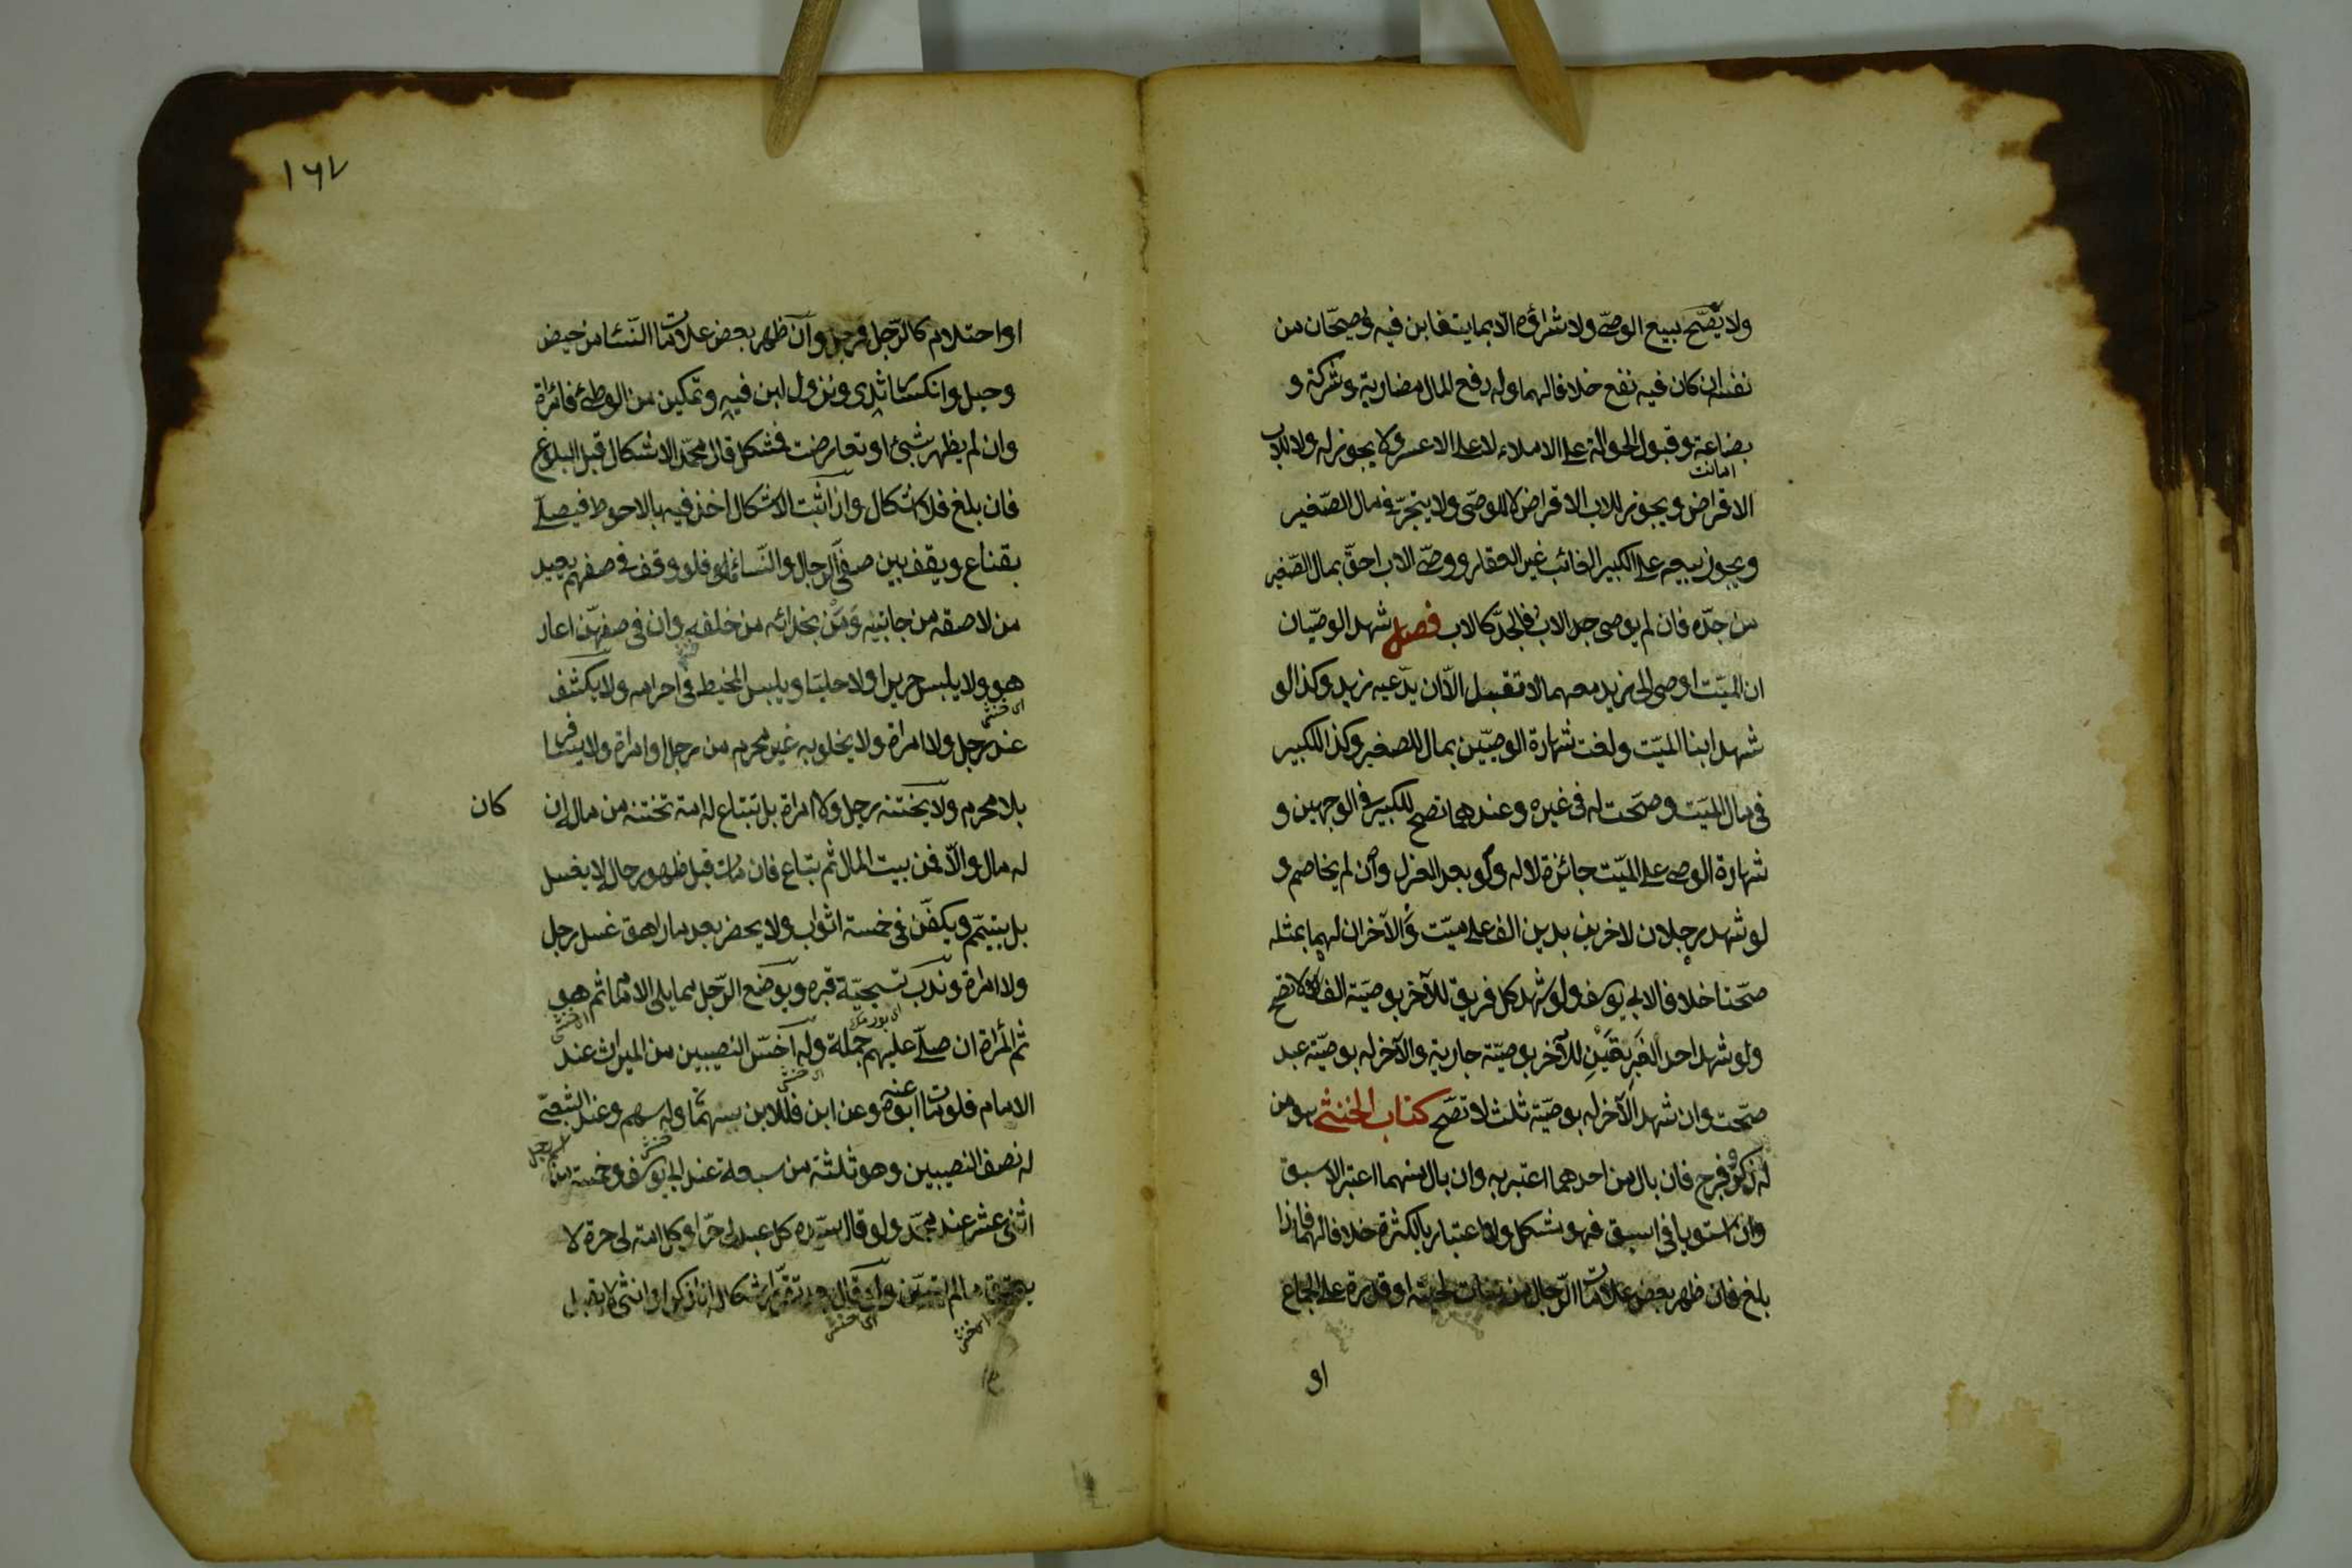 ولا يصّح بيع الوصىّ ولا شراؤه الّا بما يتغابن فيه ويصحّان من
نفسه ان كان فيه نفع خلافا لهما وله دفع المال مضاربة وشركة و
بضاعة وقبول الحوالة على الاملاء لا على الاعسر ولا يجوز له ولا للاب
امانت
الاقراض ويجوز للاب الاقتراض لا للوصّى ولا يتجرّ فى مال الصّغير
ويجوز بيعه على الكبير الغائب غير العقار ووصّى الاب احقّ بمال الصّغير
من جدّه فان لم يوصى جد الاب فالجدّ كالاب فصل شهد الوصيّان
ان الميّت اوصى الى زيد معهما لا تقبل الّا ان يدّعيه زيد وكذا لو
شهد ابنا الميّت ولغت شهادة الوصيّين بمال للصغير وكذا للكبير
فى مال الميّت وصحت له فى غيره وعندهما تصح للكبير فى الوجهين و
شهادة الوصى على الميّت جائزة لا له ولو بعد العزل وان لم يخاصم و
لو شهد رجلان لاخرين بدين الف على ميّت والآخران لهما بمثله
صحّتا خلافا لابى يوسف ولو شهد كل فريق للآخر بوصيّة الف لا تصح
ولو شهد احد الفريقين للآخر بوصيّة جارية والآخر له بوصيّة عبد
صحّت وان شهد الآخر له بوصيّة ثلث لا تصّح كتاب الخنثى هو من
له ذكر وفرج فان بال من احدهما اعتبر به وان بال منهما اعتبر الاسبق
وان استويا فى السبق فهو مشكل ولا اعتبار بالكثرة خلافا لهما فاذا
بلغ فان ظهر بعض علامات الرّجال من نبات لحية او قدرة على الجماع
او
١٦٧
او احتلام كالرّجل فرجل وان ظهر بعض علامات النّساء من حيض
وحبل وانكسار ثدى ونزول لبن فيه وتمكين من الوطئ فامراة
وان لم يظهر شيئ او تعارضت فمشكل قال محمّد الاشكال قبل البلوغ
فان بلغ فلا اشكال واذا ثبت الاشكال اخذ فيه بالاحوط فيصلّى
بقناع ويقف بين صفّى الرجال والنّساء فلو وقف فى صفهم يعيد
من لاصقه من جانبيه ومن بحذائه من خلفه وان فى صفهّن اعاد
هو ولا يلبس حريرا ولا حليّا ويلبس المخيط فى احرامه ولا يكشف
اى خنثى
عند رجل ولا امراة ولا يخلو به غير محرم من رجل او امراة ولا يسافر
بلا محرم ولا يختنه رجل ولا امراة بل تبتاع له امة تختنه من ماله ان كان
له مال والّا فمن بيت المال ثم تباع فان مات قبل ظهور حاله لا يغسل
بل ييمّم ويكفّن فى خمسة اثواب ولا يحضر بعد ما راهق غسل رجل
ولا امراة وندب تسجيّة قبره ويوضع الرّجل مما يلى الامام ثم هو
اى خنثى
ثم المرأة ان صلّى عليهم جملة وله اخسّ النصيبين من الميراث عند
اى خنثى
الامام فلو مات ابوه عنه وعن ابن فللابن سهمان وله سهم وعند الشعبىّ
خنثى
له نصف النصيبين وهو ثلثة من سبعة عند ابى يوسف وخمسة من
اثنى عشر عند محمّد ولو قال سيّده كل عبد لى حرّ او كل امة لى حرة لا
يعتق ما لم يستبن وان قال بعد تقرّر اشكاله انا ذكر او انثى لا يقبل
اى خنثى
اى خنثى